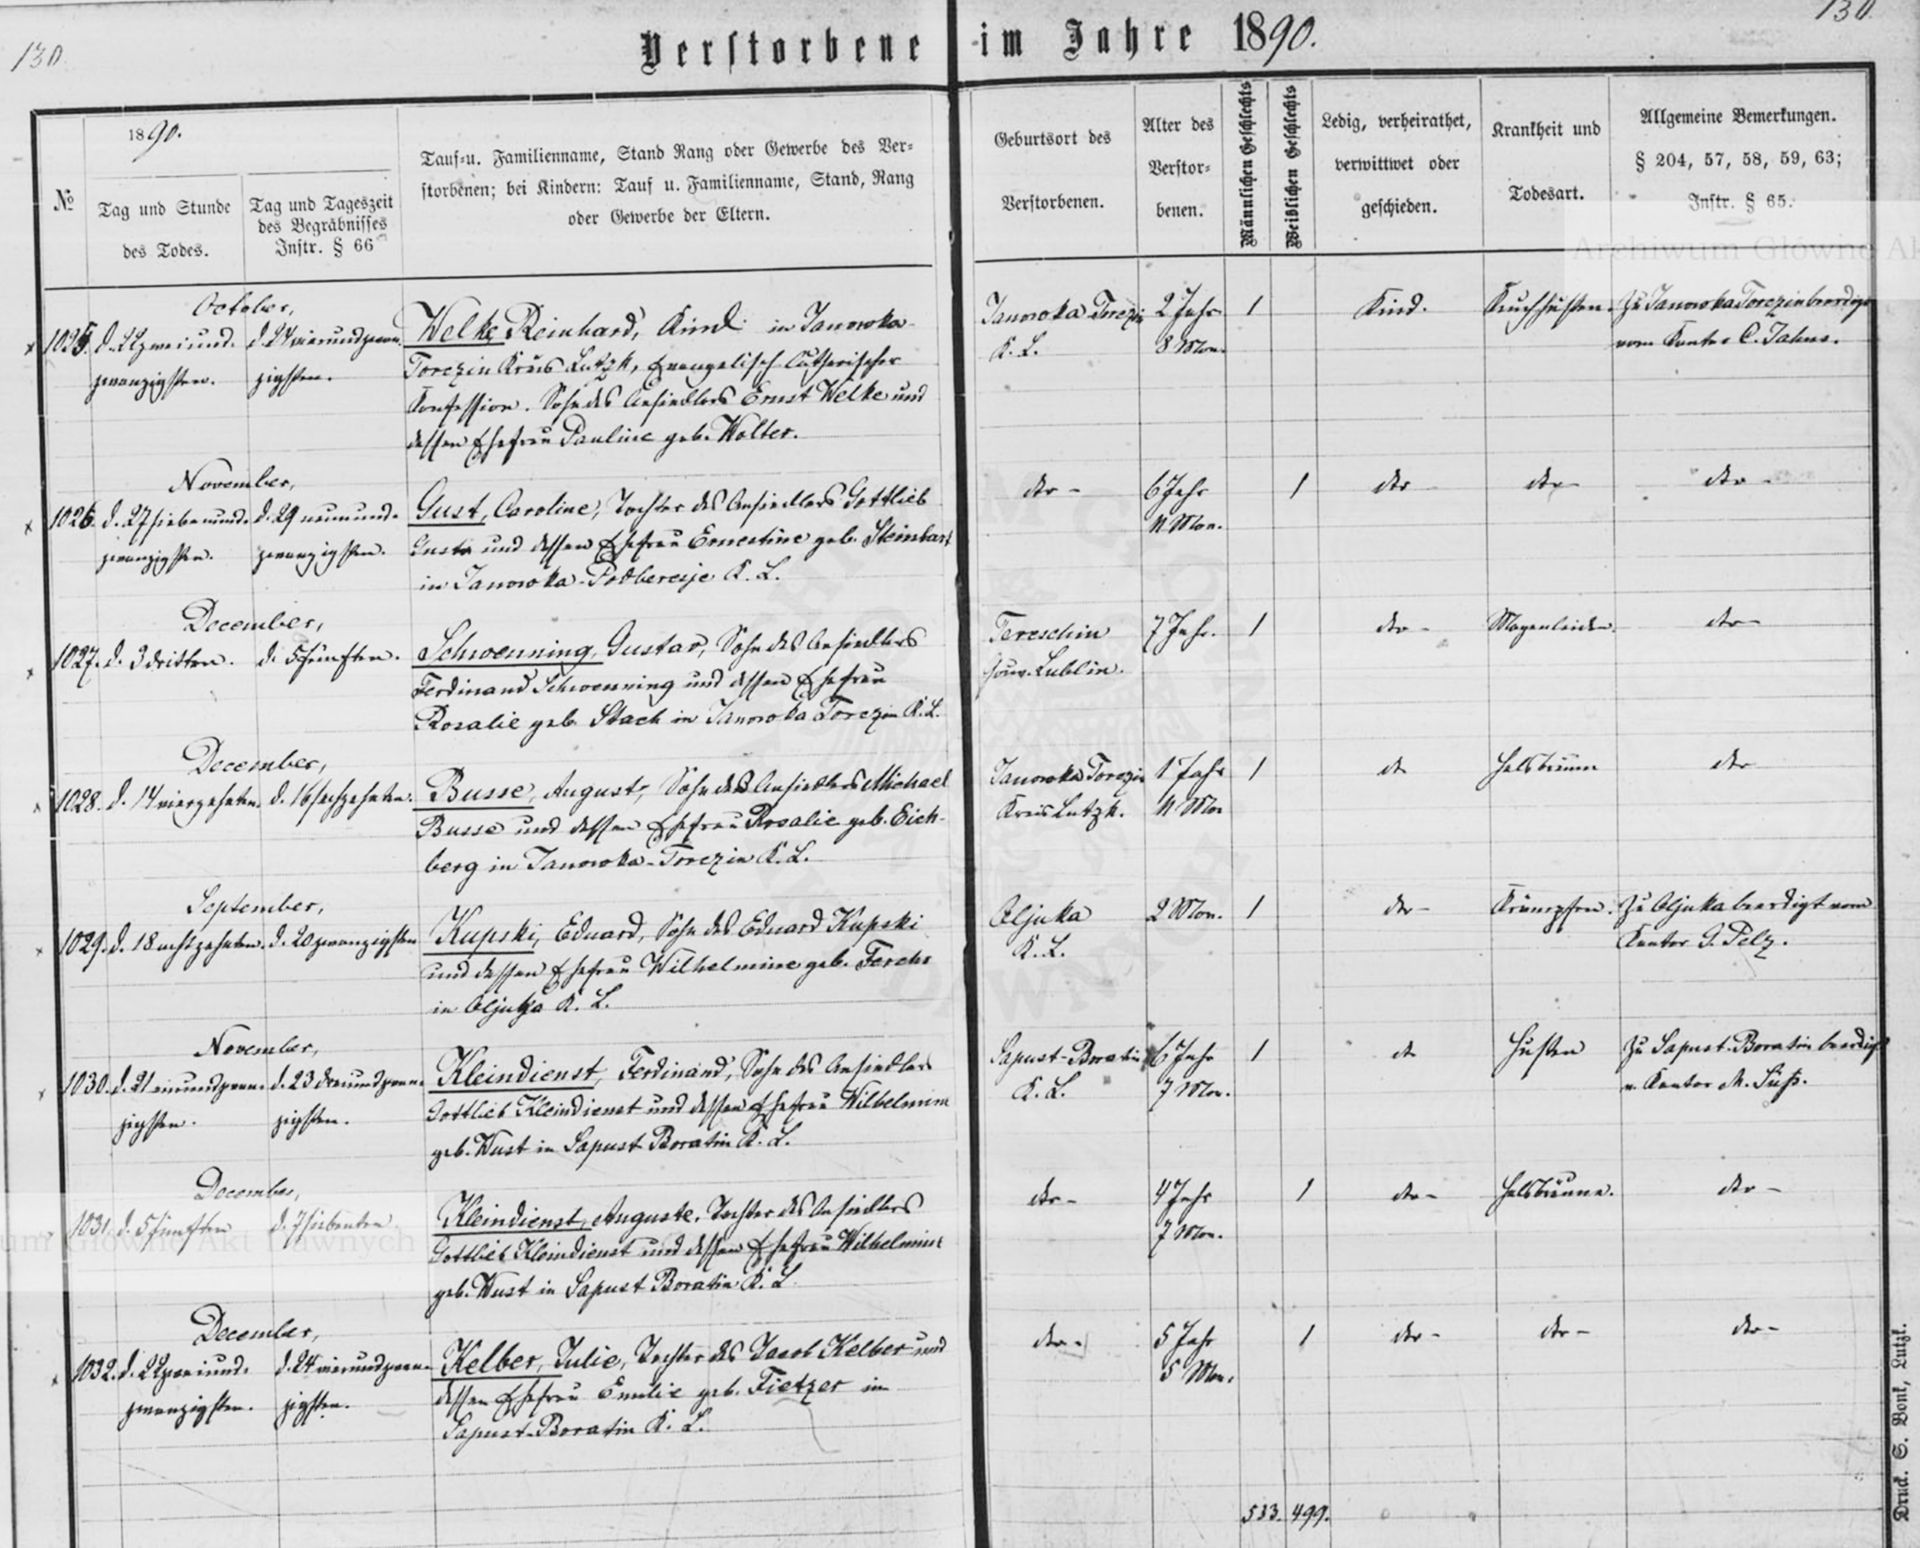 130
130
Verstorbene im Jahre 1890.
№
1890.
Tag und Stunde
des Todes.
Tag und Tageszeit
des Begräbnisses
Instr. § 66
Tauf=u. Familienname, Stand Rang oder Gewerbe des Ver=
storbenen; bei Kindern: Tauf u. Familienname, Stand, Rang
oder Gewerbe der Eltern.
Geburtsort des
Verstorbenen.
Alter des
Verstor=
benen.
Männlichen Geschlechts
Weiblichen Geschlechts
Ledig, verheirathet,
verwittwet oder
geschieden.
Krankheit und
Todesart.
Allgemeine Bemerkungen.
§ 204, 57, 58, 59, 63;
Instr. § 65.
Archiwum Główne Ak
October,
1025. d. 22 zweiund- d. 24 vierundzwan-
zwanzigsten. zigsten.
Welke, Reinhard, Kind in Janowka-
Torczin Kreis Lutzk, Evangelisch-Lutherischer
Konfession. Sohn des Ansiedlers Ernst Welke und
dessen Ehefrau Pauline geb. Wolter.
Janowka Torczin
K. L.
2 Jahr
8 Mon.
1
Kind.
Keuchhusten.
Zu Janowka Torczin beerdigt
vom Kantor C. Jahns.
November,
1026. d. 27 siebenund- d. 29 neunund-
zwanzigsten. zwanzigsten.
Gust, Caroline, Tochter des Ansiedlers Gottlieb
Gust und dessen Ehefrau Ernestine geb. Steinhart
in Janowka-Podberesje K. L.
dto -
6 Jahr
11 Mon.
1
dto
dto -
dto -
December,
1027. d. 3 dritten. d. 5 fünften.
Schwenning, Gustav, Sohn des Ansiedlers
Ferdinand Schwenning und dessen Ehefrau
Rosalie geb. Stach in Janowka Torczin K. L.
Tereschin
Gouv. Lublin.
7 Jahr.
1
dto -
Magenleiden.
dto -
December,
1028. d. 14 vierzehnten. d. 16 sechzehnten.
Busse, August, Sohn des Ansiedlers Michael
Busse und dessen Ehefrau Rosalie geb. Eich-
berg in Janowka-Torczin K. L.
Janowka Torczin
Kreis Lutzk.
1 Jahr
11 Mon
1
dto
Halsbräune
dto
September,
1029. d. 18 achtzehnten. d. 20 zwanzigsten
Kupski, Eduard, Sohn des Eduard Kupski
und dessen Ehefrau Wilhelmine geb. Ferchs
in Oljuka K. L.
Oljuka
K. L.
2 Mon.
1
dto -
Krämpfen.
Zu Oljuka beerdigt vom
Kantor G. Pelz.
November,
1030. d. 21 einundzwan- d. 23 dreiundzwan-
zigsten. zigsten.
Kleindienst, Ferdinand, Sohn des Ansiedlers
Gottlieb Kleindienst und dessen Ehefrau Wilhelmine
geb. Wust in Sapust Boratin K. L.
Sapust-Boratin
K. L.
6 Jahr
7 Mon.
1
dto
Husten
Zu Sapust-Boratin beerdigt
v. Kantor M. Süss.
December,
1031. d. 5 fünften d. 7 siebenten
Kleindienst, Auguste, Tochter des Ansiedlers
Gottlieb Kleindienst und dessen Ehefrau Wilhelmine
geb. Wust in Sapust Boratin K. L.
dto -
4 Jahr
7 Mon.
1
dto -
Halsbräune.
dto -
um Główne Akt Dawnych
December,
1032. d. 22 zweiund- d. 24 vierundzwan-
zwanzigsten. zigsten.
Kelber, Julie, Tochter des Jacob Kelber und
dessen Ehefrau Emilie geb. Fietzer in
Sapust-Boratin K. L.
dto -
5 Jahr
5 Mon.
1
dto -
dto -
dto -
533. 499.
Druck. S. Bonk, Lutzk.